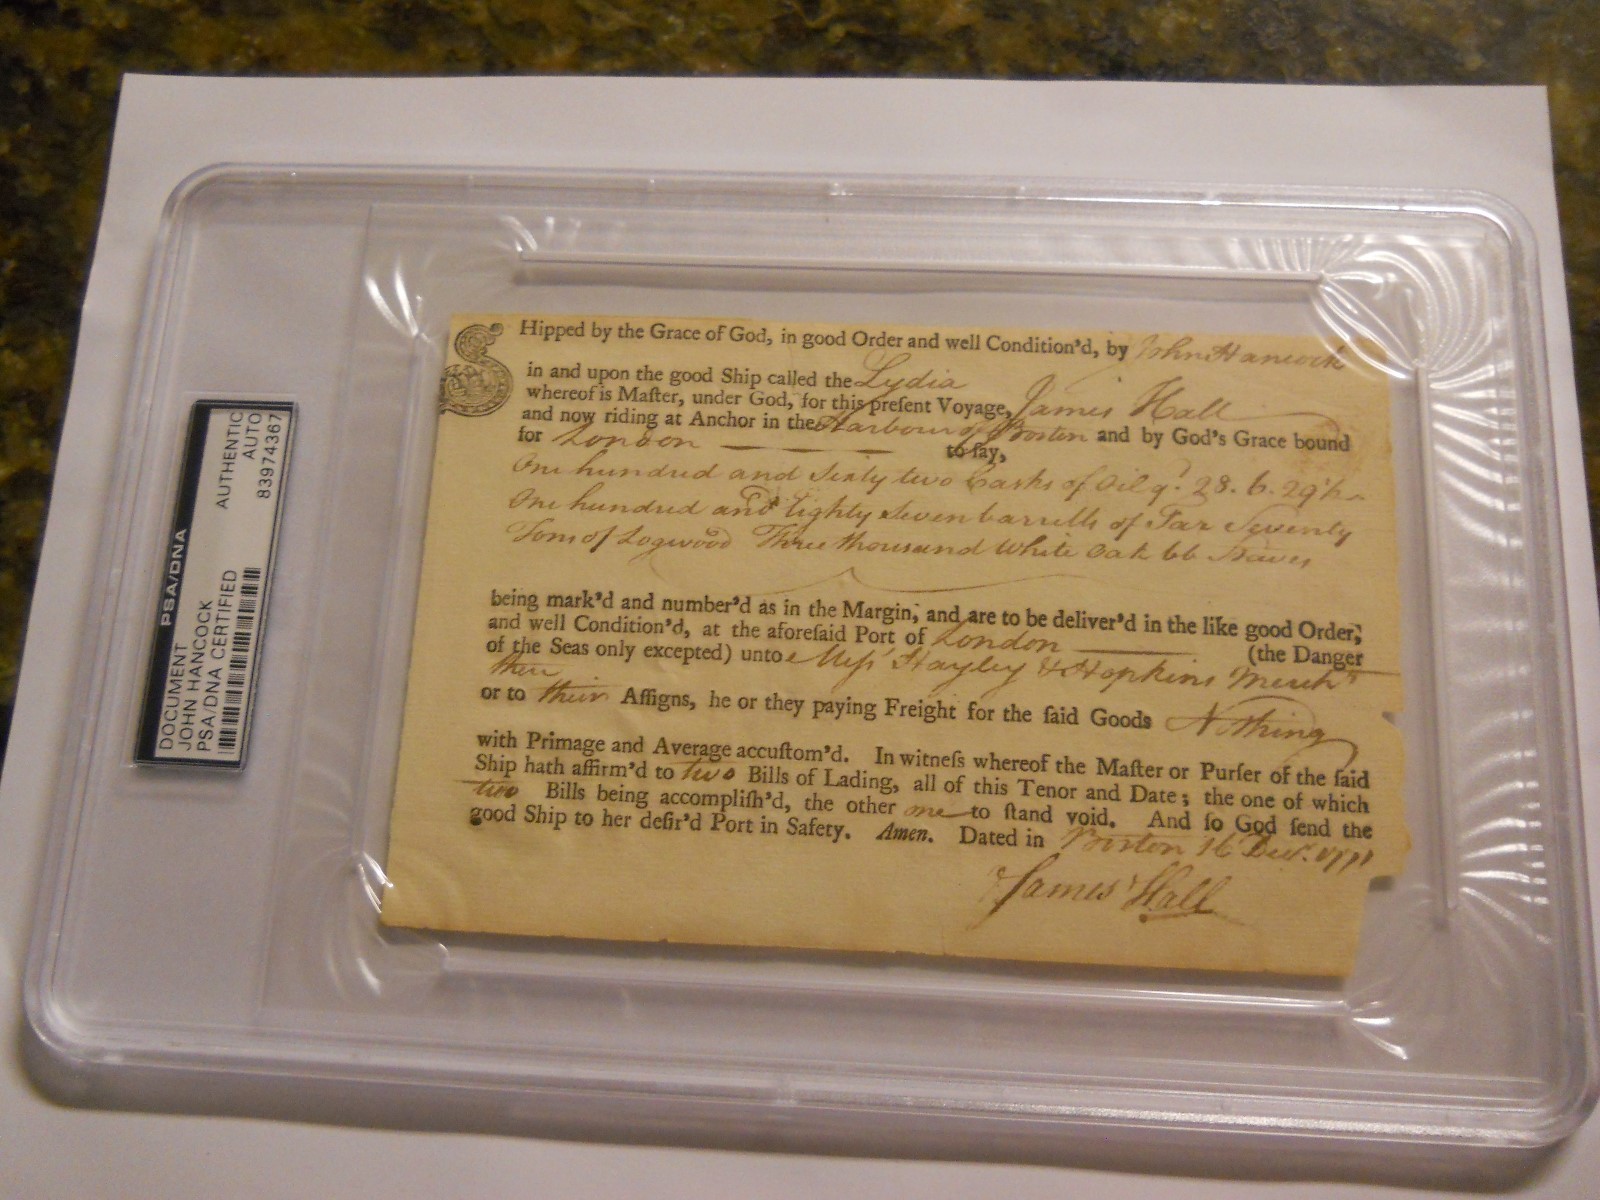 PSA/DNA
DOCUMENT
JOHN HANCOCK
PSA/DNA CERTIFIED
AUTHENTIC
AUTO
83974367
SHipped by the Grace of God, in good Order and well Condition'd, by John Hancock
in and upon the good Ship called the Lydia
whereof is Maſter, under God, for this preſent Voyage, James Hall
and now riding at Anchor in the Harbour of Boston and by God's Grace bound
for London to ſay,
One hundred and Sixty two Casks of Oil qt. 28. 6. 29
One hundred and Eighty Seven barrells of Tar Seventy
Tons of Logwood Three thousand White Oak bb Staves
being mark'd and number'd as in the Margin, and are to be deliver'd in the like good Order,
and well Condition'd, at the aforeſaid Port of London (the Danger
of the Seas only excepted) unto Meſsrs Hayley & Hopkins Mercht
there
or to their Aſſigns, he or they paying Freight for the ſaid Goods Nothing
with Primage and Average accuſtom'd. In witneſs whereof the Maſter or Purſer of the ſaid
Ship hath affirm'd to two Bills of Lading, all of this Tenor and Date; the one of which
two Bills being accompliſh'd, the other one to ſtand void. And ſo God ſend the
good Ship to her deſir'd Port in Safety. Amen. Dated in Boston 16 Decr. 1771
James Hall